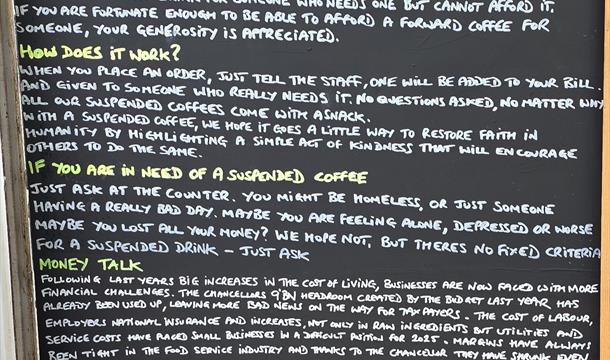 SOMEONE WHO NEEDS ONE BUT CANNOT AFFORD IT.
IF YOU ARE FORTUNATE ENOUGH TO BE ABLE TO AFFORD A FORWARD COFFEE FOR
SOMEONE, YOUR GENEROSITY IS APPRECIATED.
HOW DOES IT WORK?
WHEN YOU PLACE AN ORDER, JUST TELL THE STAFF, ONE WILL BE ADDED TO YOUR BILL.
AND GIVEN TO SOMEONE WHO REALLY NEEDS IT. NO QUESTIONS ASKED, NO MATTER WHY
ALL OUR SUSPENDED COFFEES COME WITH A SNACK.
WITH A SUSPENDED COFFEE, WE HOPE IT GOES A LITTLE WAY TO RESTORE FAITH IN
HUMANITY BY HIGHLIGHTING A SIMPLE ACT OF KINDNESS THAT WILL ENCOURAGE
OTHERS TO DO THE SAME.
IF YOU ARE IN NEED OF A SUSPENDED COFFEE
JUST ASK AT THE COUNTER. YOU MIGHT BE HOMELESS, OR JUST SOMEONE
HAVING A REALLY BAD DAY. MAYBE YOU ARE FEELING ALONE, DEPRESSED OR WORSE
MAYBE YOU LOST ALL YOUR MONEY? WE HOPE NOT, BUT THERES NO FIXED CRITERIA
FOR A SUSPENDED DRINK - JUST ASK
MONEY TALK
FOLLOWING LAST YEARS BIG INCREASES IN THE COST OF LIVING, BUSINESSES ARE NOW FACED WITH MORE
FINANCIAL CHALLENGES. THE CHANCELLORS 9'BN HEADROOM CREATED BY THE BUDGET LAST YEAR HAS
ALREADY BEEN USED UP, LEAVING MORE BAD NEWS ON THE WAY FOR TAX PAYERS. THE COST OF LABOUR,
EMPLOYERS NATIONAL INSURANCE AND INCREASES, NOT ONLY IN RAW INGREDIENTS BUT UTILITIES AND
SERVICE COSTS HAVE PLACED SMALL BUSINESSES IN A DIFFICULT POSITION FOR 2025. MARGINS HAVE ALWAYS
BEEN TIGHT IN THE FOOD SERVICE INDUSTRY AND THANKS TO THE CHANCELLOR THEY HAVE SHRUNK EVEN